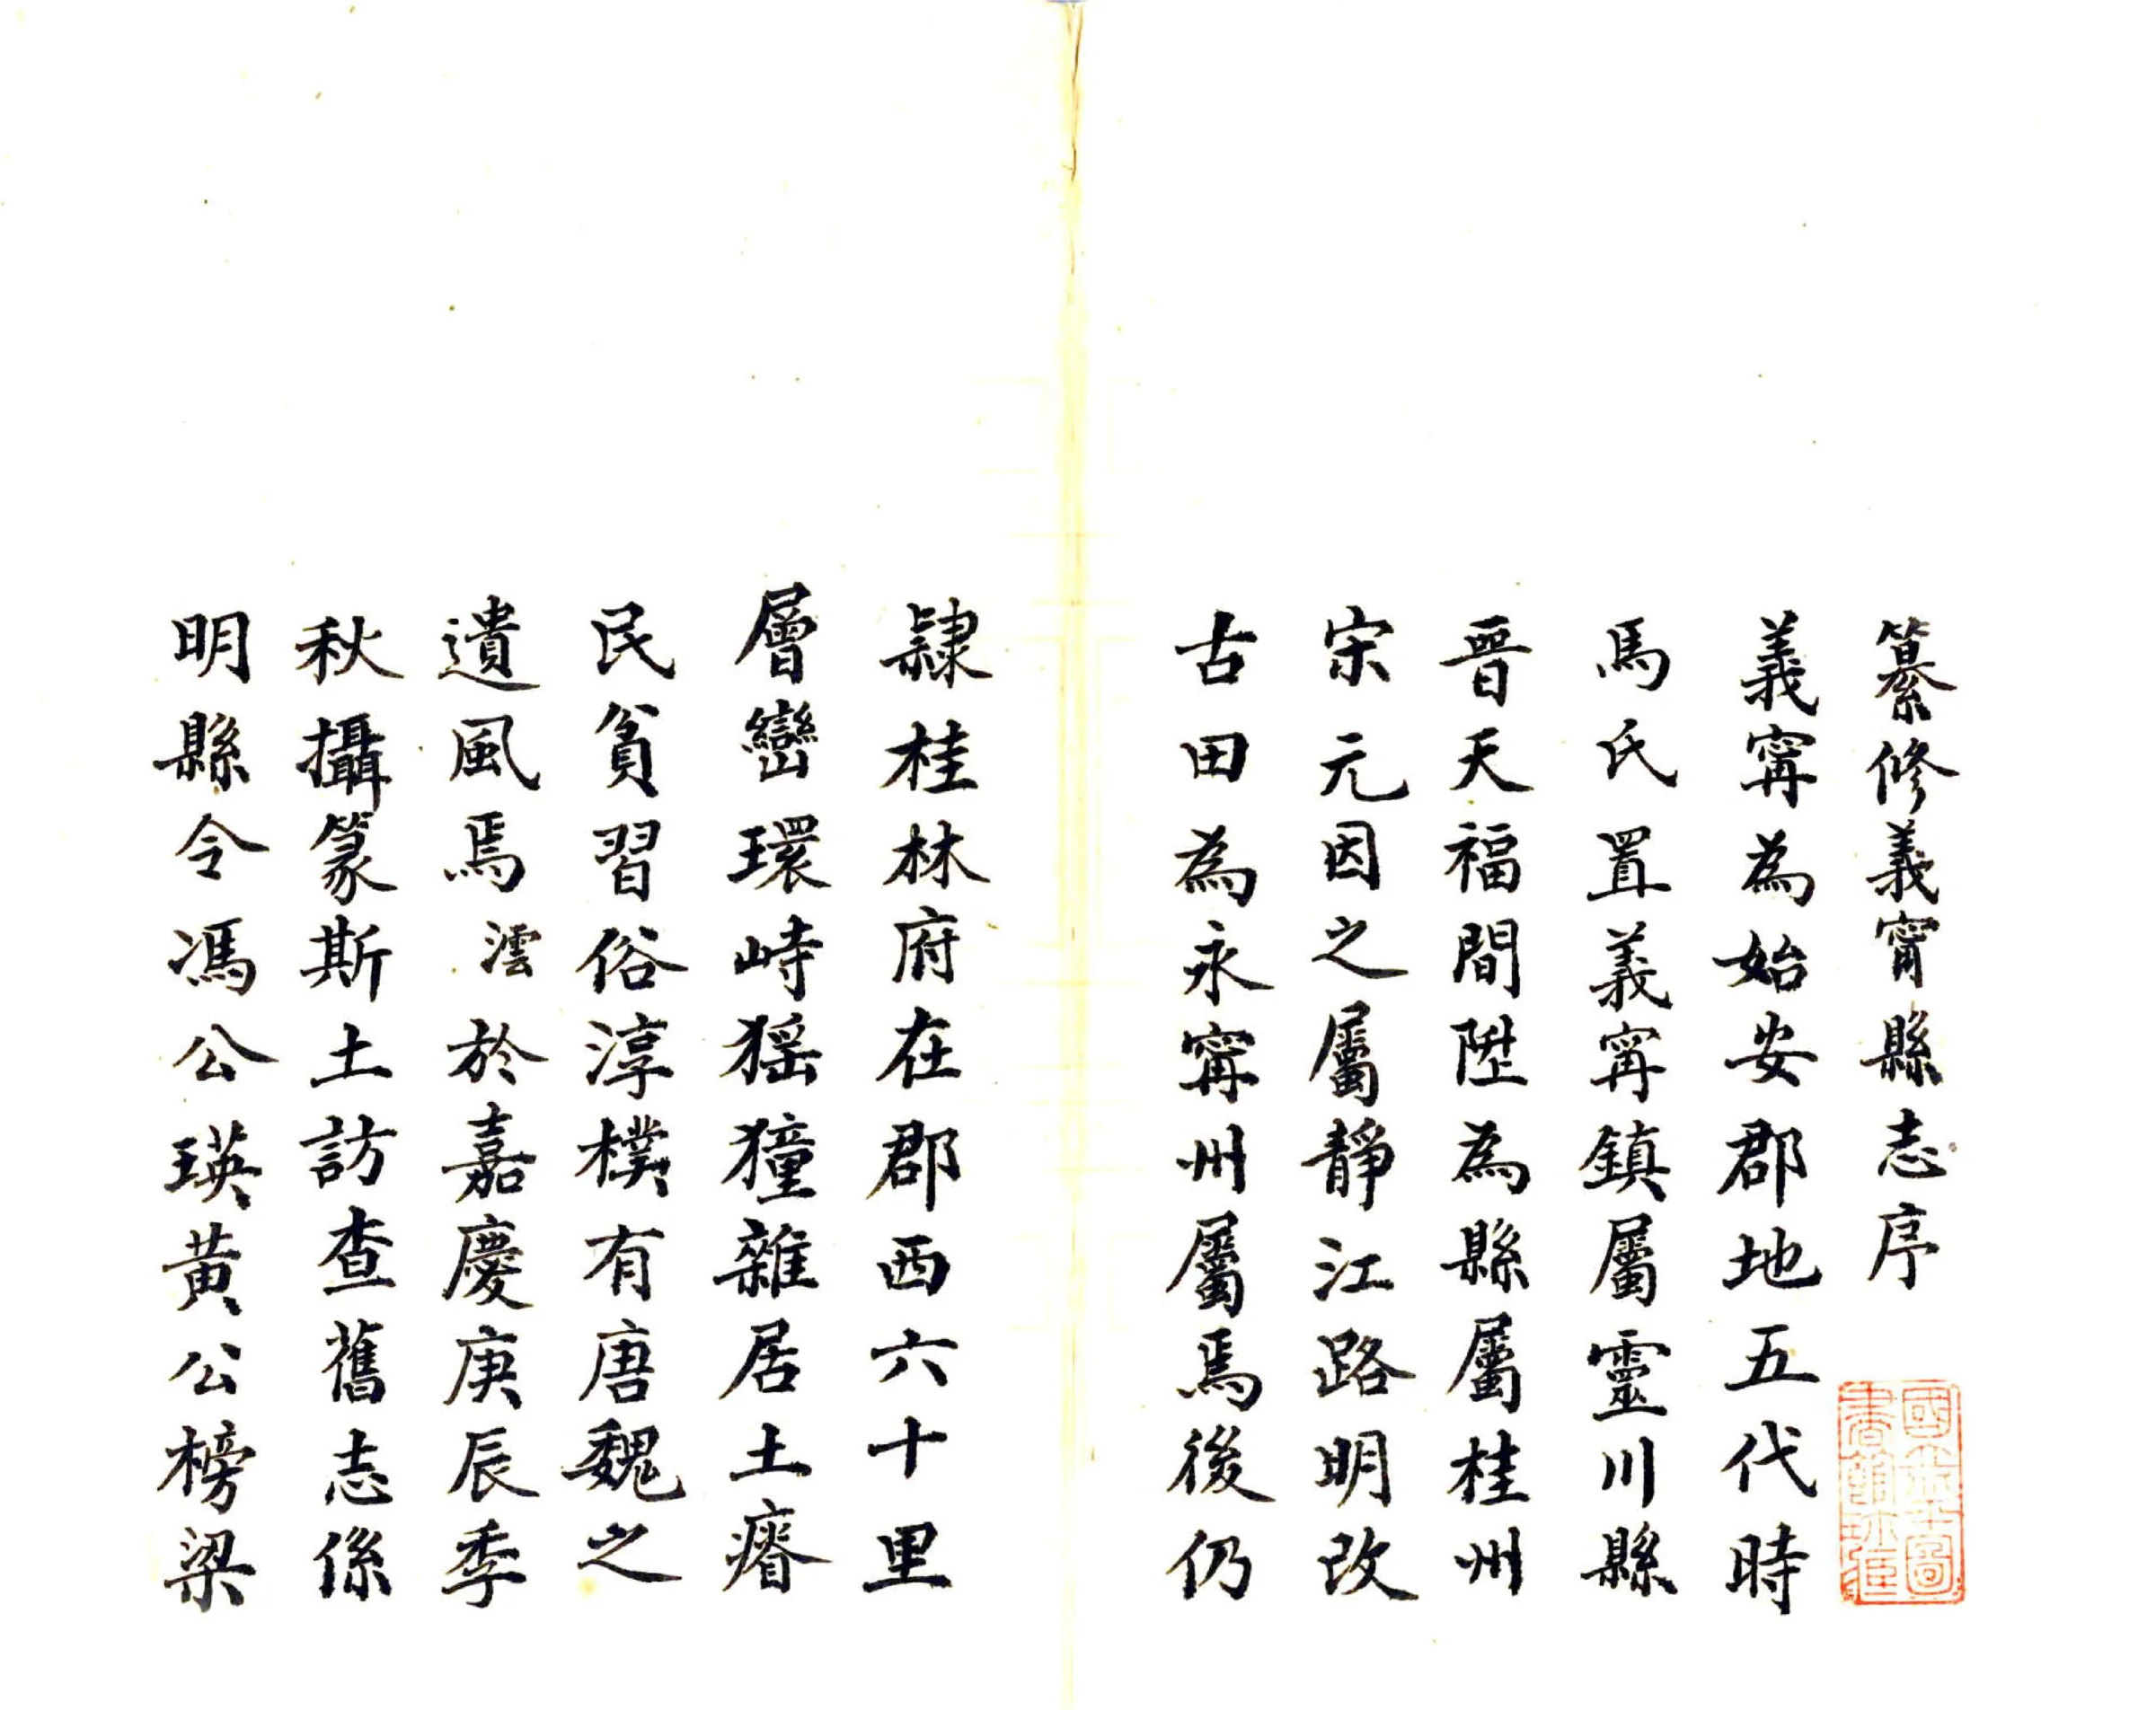 纂修義甯縣志序
義寗為始安郡地五代時
馬氏置義寗鎮屬靈川縣
晉天福間陞為縣屬桂州
宋元因之屬靜江路明改
古田為永寗州屬焉後仍
隸桂林府在郡西六十里
層巒環峙猺獞雜居土瘠
民貧習俗淳樸有唐魏之
遺風焉澐於嘉慶庚辰季
秋攝篆斯土訪查舊志係
明縣令馮公瑛黄公榜梁
國立北平圖
書館珍藏